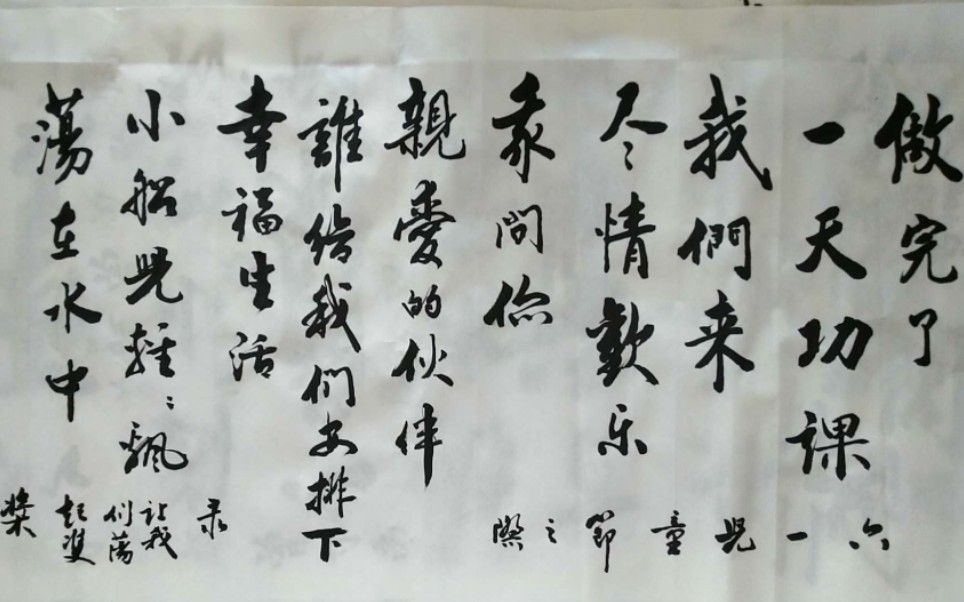 做完了
一天功課
我們来
尽情歡乐
我問你
親愛的伙伴
誰给我们安排下
幸福生活
小船兒輕々飄
蕩在水中
六一兒童節之際
录
让我
们蕩
起雙
槳